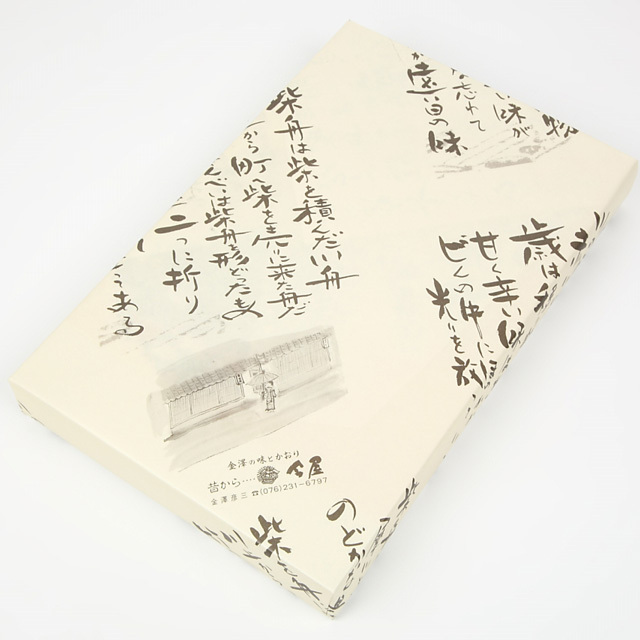 物
い味が
忘れて
遠い昔の味
柴舟は柴を積んだ小舟
から町へ柴を売りに来た舟だ
んべいは柴舟を形どったもの
二つに折り
である
歳は
甘く辛い
ビンの中に
光りを放
金澤の味とかおり
昔から‥‥
今屋
金澤彦三 ☎(076)231-6797
のどか
柴